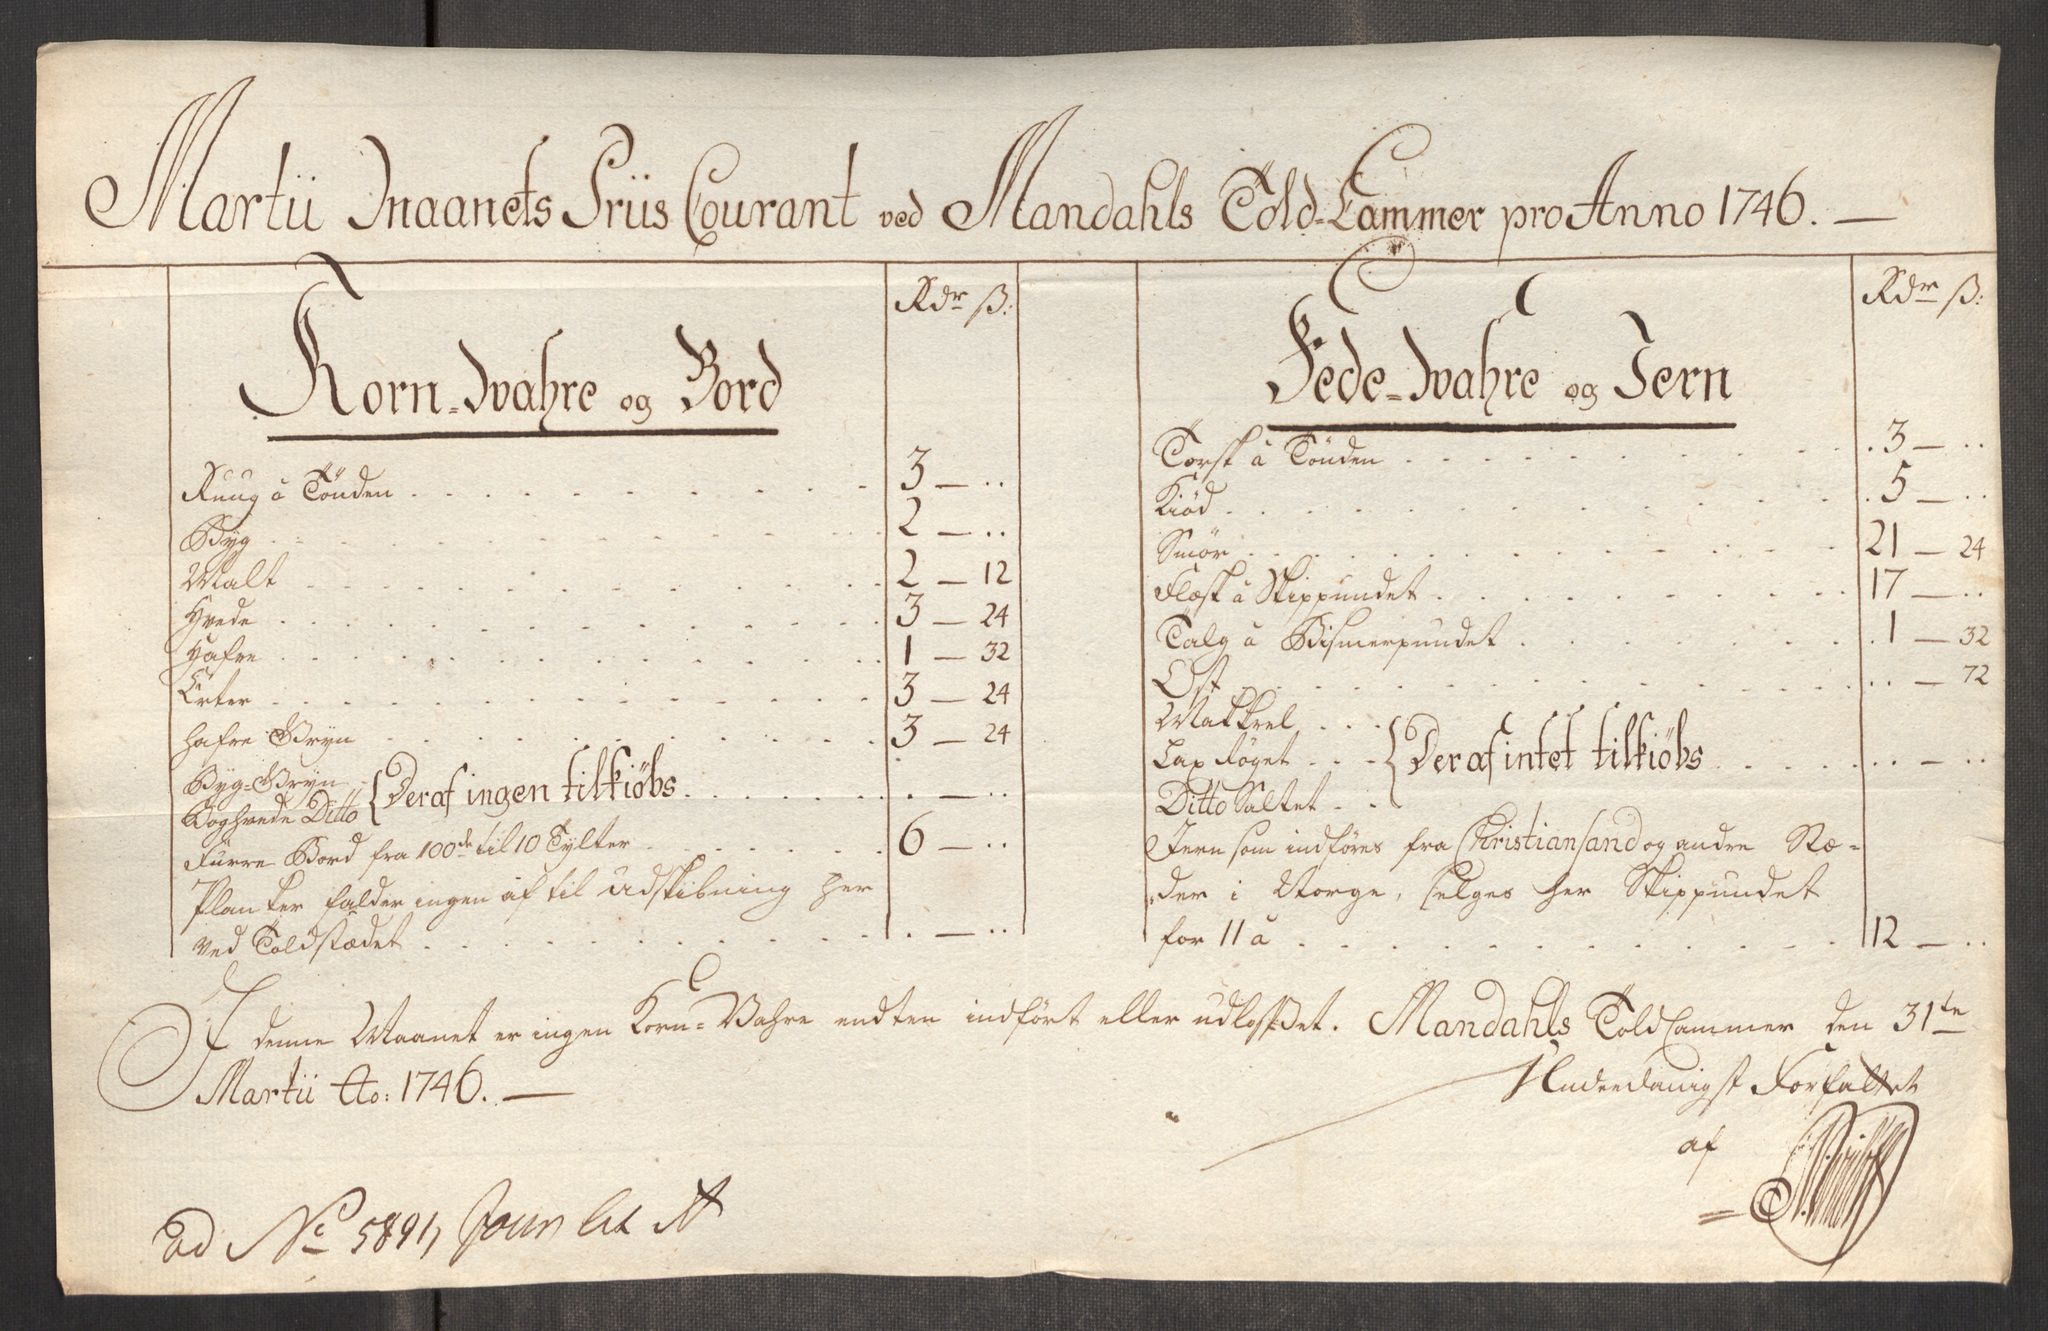 Martii Maanets Priis Courant ved Mandahls Told-Cammer pro Anno 1746. —
Rdr ß:
Korn-Wahre og Bord
Ruug á Tönden . . . 3 — ..
Byg . . . 2 — ..
Malt . . . 2 — 12
Hvede . . . 3 — 24
Hafre . . . 1 — 32
Erter . . . 3 — 24
Hafre Gryn . . . 3 — 24
Byg-Gryn
Boghvede Ditto { Deraf ingen tilkiöbs . . . . — ..
Furre Bord fra 100de til 10 Tylter . . . 6 — ..
Planker falder ingen af til Udskibning her
ved Toldstædet . . . . — ..
Rdr ß:
Fede-Wahre og Jern
Torsk á Tönden . . . 3 — ..
Kiöd . . . 5 — ..
Smör . . . 21 — 24
Flæsk á Skippundet . . . 17 — ..
Talg á Bismerpundet . . . 1 — 32
Ost . . . .. — 72
Makkrel . . .
Lax Röget . . . { Deraf intet tilkiöbs . . . .. — ..
Ditto Saltet . .
Jern som indföres fra Christiansand og andre Stæ-
der i Norge, selges her Skippundet
for 11 á . . . 12 — ..
I denne Maanet er ingen Korn-Vahre endten indfört eller udlosset. Mandahls Told Cammer den 31te
Martii Ao: 1746. —
Underdanigst Forfattet
af
ad No 5891, Jour Lit A